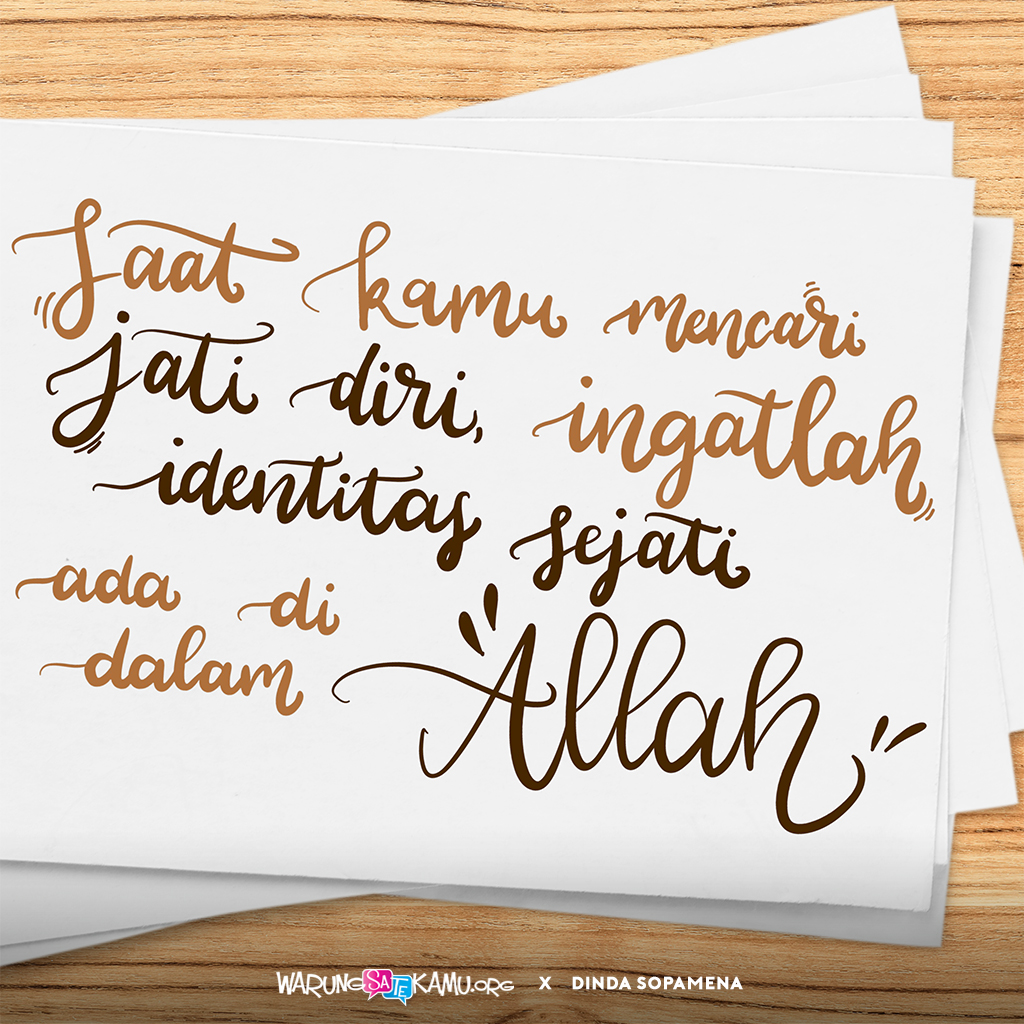 Saat kamu mencari
jati diri, ingatlah
identitas sejati
ada di
dalam Allah
WARUNGSATEKAMU.ORG X DINDA SOPAMENA